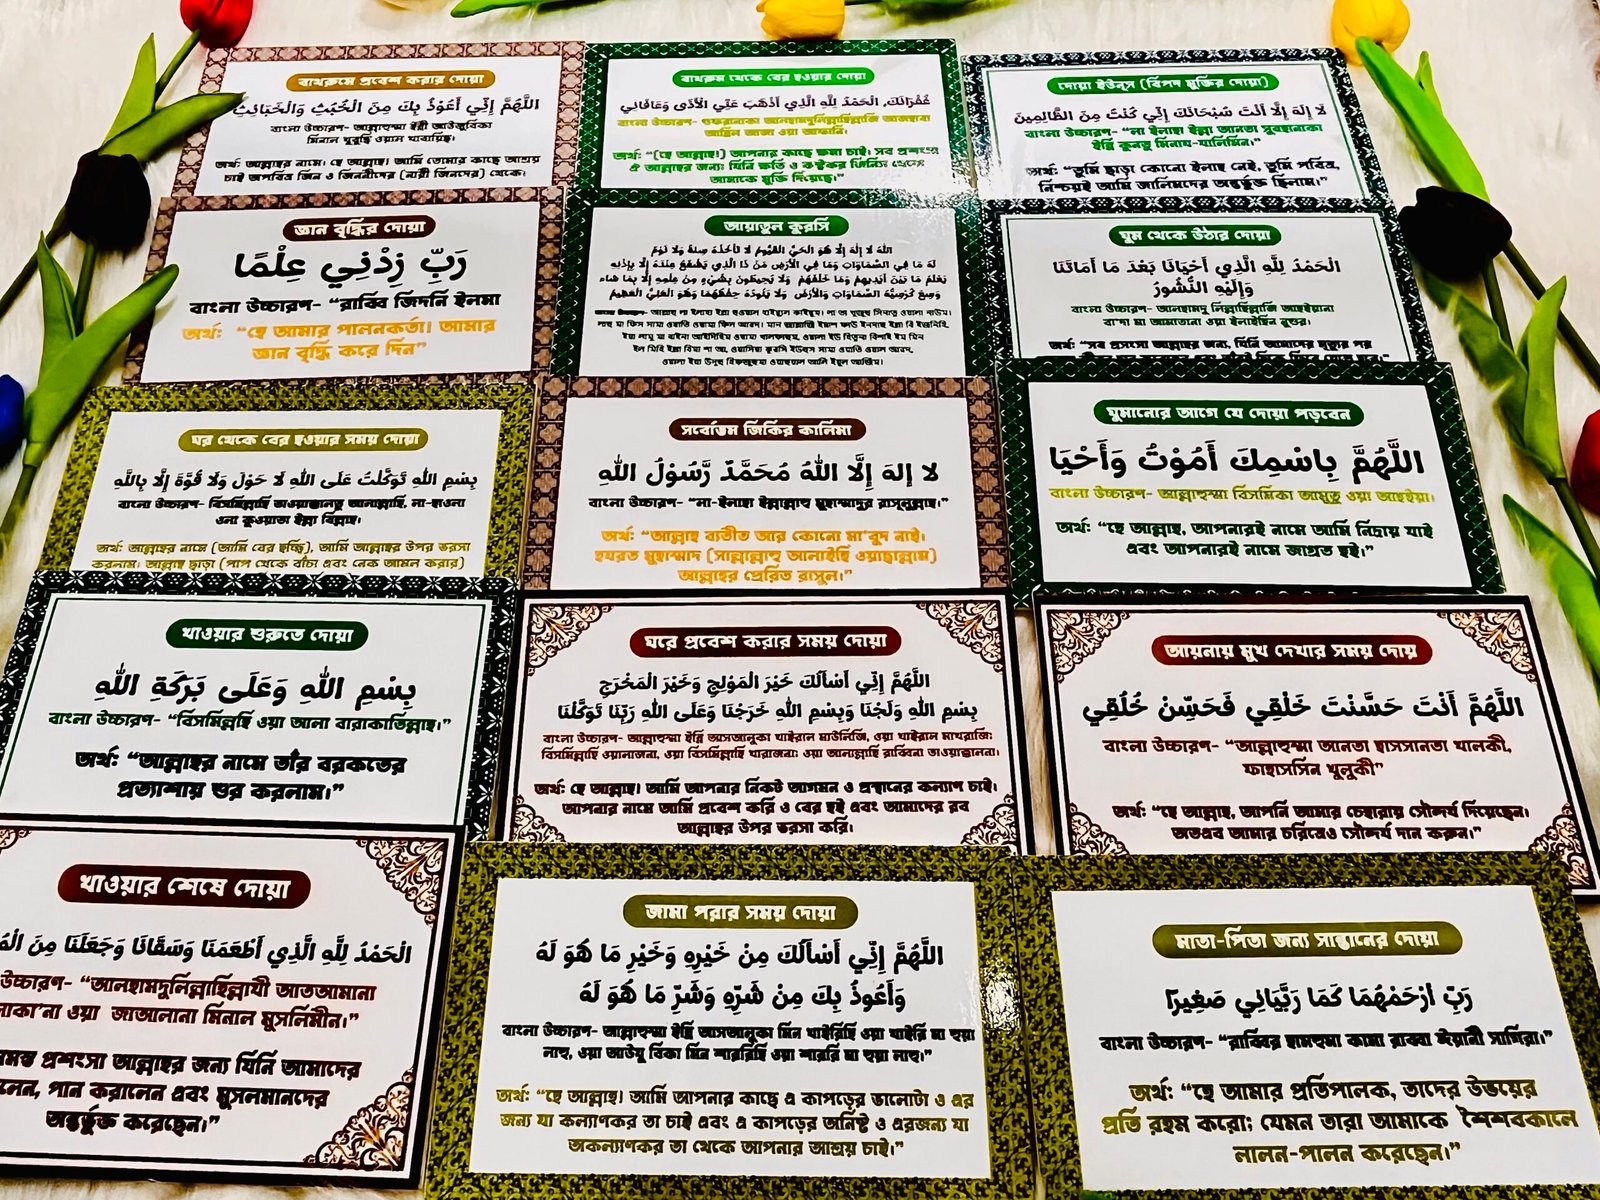 বাথরুমে প্রবেশ করার দোয়া
اللَّهُمَّ إِنِّي أَعُوْذُ بِكَ مِنَ الْخُبُثِ وَالْخَبَائِثِ
বাংলা উচ্চারণ- আল্লাহুম্মা ইন্নী আউজুবিকা
মিনাল খুবুছি ওয়াল খাবায়িছ।
অর্থ: আল্লাহর নামে। হে আল্লাহ! আমি তোমার কাছে আশ্রয়
চাই অপবিত্র জিন ও জিনীদের (নারী জিনদের) থেকে।
বাথরুম থেকে বের হওয়ার দোয়া
غُفْرَانَكَ، الْحَمْدُ لِلَّهِ الَّذِي أَذْهَبَ عَنِّي الْأَذَى وَعَافَانِي
বাংলা উচ্চারণ- গুফরানাকা আলহামদুলিল্লাহিল্লাজি আজহাবা
আন্নিল আজা ওয়া আফানি।
অর্থ- “(হে আল্লাহ!) আপনার কাছে ক্ষমা চাই। সব প্রশংসা
ঐ আল্লাহর জন্য; যিনি ক্ষতি ও কষ্টকর জিনিস থেকে
আমাকে মুক্তি দিয়েছে।”
দোয়া ইউনুস (বিপদ মুক্তির দোয়া)
لَا إِلَهَ إِلَّا أَنْتَ سُبْحَانَكَ إِنِّي كُنْتُ مِنَ الظَّالِمِينَ
বাংলা উচ্চারণ- “লা ইলাহা ইল্লা আনতা সুবহানাকা
ইন্নি কুনতু মিনায-যালিমিন।”
অর্থ: “তুমি ছাড়া কোনো ইলাহ নেই, তুমি পবিত্র,
নিশ্চয়ই আমি জালিমদের অন্তর্ভুক্ত ছিলাম।”
জ্ঞান বৃদ্ধির দোয়া
رَبِّ زِدْنِي عِلْمًا
বাংলা উচ্চারণ- “রাব্বি জিদনি ইলমা
অর্থ: “হে আমার পালনকর্তা। আমার
জ্ঞান বৃদ্ধি করে দিন”
আয়াতুল কুরসি
اللَّهُ لَا إِلَهَ إِلَّا هُوَ الْحَيُّ الْقَيُّومُ لَا تَأْخُذُهُ سِنَةٌ وَلَا نَوْمٌ
لَهُ مَا فِي السَّمَاوَاتِ وَمَا فِي الْأَرْضِ مَنْ ذَا الَّذِي يَشْفَعُ عِنْدَهُ إِلَّا بِإِذْنِهِ
يَعْلَمُ مَا بَيْنَ أَيْدِيهِمْ وَمَا خَلْفَهُمْ وَلَا يُحِيطُونَ بِشَيْءٍ مِنْ عِلْمِهِ إِلَّا بِمَا شَاءَ
وَسِعَ كُرْسِيُّهُ السَّمَاوَاتِ وَالْأَرْضَ وَلَا يَئُودُهُ حِفْظُهُمَا وَهُوَ الْعَلِيُّ الْعَظِيمُ
ঘুম থেকে উঠার দোয়া
الْحَمْدُ لِلَّهِ الَّذِي أَحْيَانَا بَعْدَ مَا أَمَاتَنَا
وَإِلَيْهِ النُّشُورُ
বাংলা উচ্চারণ- আলহামদু লিল্লাহিল্লাজি আহইয়ানা
বা'দা মা আমাতানা ওয়া ইলাইহিন নুশুর।
অর্থ: “সব প্রসংসা আল্লাহর জন্য, যিনি আমাদের মৃত্যুর পর
ঘর থেকে বের হওয়ার সময় দোয়া
بِسْمِ اللهِ تَوَكَّلْتُ عَلَى اللهِ لَا حَوْلَ وَلَا قُوَّةَ إِلَّا بِاللهِ
বাংলা উচ্চারণ- বিসমিল্লাহি তাওয়াক্কালতু আলাল্লাহি, লা-হাওলা
ওলা কুওয়াতা ইল্লা বিল্লাহ।
অর্থ: আল্লাহর নামে (আমি বের হচ্ছি), আমি আল্লাহর উপর ভরসা
করলাম। আল্লাহ ছাড়া (পাপ থেকে বাঁচা এবং নেক আমল করার)
সর্বোত্তম জিকির কালিমা
لا إلهَ إِلَّا اللهُ مُحَمَّدٌ رَّسُوْلُ اللهِ
বাংলা উচ্চারণ- “লা-ইলাহা ইল্লাল্লাহু মুহাম্মাদুর রাসূলুল্লাহ।”
অর্থ- “আল্লাহ ব্যতীত আর কোনো মা'বুদ নাই।
হযরত মুহাম্মাদ (সাল্লাল্লাহু আলাইহি ওয়াছাল্লাম)
আল্লাহর প্রেরিত রাসুল।”
ঘুমানোর আগে যে দোয়া পড়বেন
اللَّهُمَّ بِاسْمِكَ أَمُوْتُ وَأَحْيَا
বাংলা উচ্চারণ- আল্লাহুম্মা বিসমিকা আমুতু ওয়া আহইয়া।
অর্থ: “হে আল্লাহ, আপনারই নামে আমি নিদ্রায় যাই
এবং আপনারই নামে জাগ্রত হই।”
খাওয়ার শুরুতে দোয়া
بِسْمِ اللهِ وَعَلَى بَرَكَةِ اللهِ
বাংলা উচ্চারণ- “বিসমিল্লহি ওয়া আলা বারাকাতিল্লাহ।”
অর্থ: “আল্লাহর নামে তাঁর বরকতের
প্রত্যাশায় শুর করলাম।”
ঘরে প্রবেশ করার সময় দোয়া
اللَّهُمَّ إِنِّي أَسْأَلُكَ خَيْرَ الْمَوْلِجِ وَخَيْرَ الْمَخْرَجِ
بِسْمِ اللهِ وَلَجْنَا وَبِسْمِ اللهِ خَرَجْنَا وَعَلَى اللهِ رَبِّنَا تَوَكَّلْنَا
বাংলা উচ্চারণ- আল্লাহুম্মা ইন্নি আসআলুকা খাইরাল মাউলিজি, ওয়া খাইরাল মাখরাজি;
বিসমিল্লাহি ওয়ালাজনা, ওয়া বিসমিল্লাহি খারাজনা; ওয়া আলাল্লাহি রাব্বিনা তাওয়াক্কালনা।
অর্থ: হে আল্লাহ! আমি আপনার নিকট আগমন ও প্রস্থানের কল্যাণ চাই।
আপনার নামে আমি প্রবেশ করি ও বের হই এবং আমাদের রব
আল্লাহর উপর ভরসা করি।
আয়নায় মুখ দেখার সময় দোয়
اللَّهُمَّ أَنْتَ حَسَّنْتَ خَلْقِي فَحَسِّنْ خُلُقِي
বাংলা উচ্চারণ- “আল্লাহুম্মা আনতা হাসসানতা খালকী,
ফাহাসসিন খুলুকী”
অর্থ: “হে আল্লাহ, আপনি আমার চেহারায় সৌন্দর্য দিয়েছেন।
অতএব আমার চরিত্রেও সৌন্দর্য দান করুন।”
খাওয়ার শেষে দোয়া
الْحَمْدُ لِلَّهِ الَّذِي أَطْعَمَنَا وَسَقَانَا وَجَعَلَنَا مِنَ
উচ্চারণ- “আলহামদুলিল্লাহিল্লাযী আতআমানা
ওয়া জাআলানা মিনাল মুসলিমীন।”
প্রশংসা আল্লাহর জন্য যিনি আমাদের
পান করালেন এবং মুসলমানদের
অন্তর্ভুক্ত করেছেন।”
জামা পরার সময় দোয়া
اللَّهُمَّ إِنِّي أَسْأَلُكَ مِنْ خَيْرِهِ وَخَيْرِ مَا هُوَ لَهُ
وَأَعُوذُ بِكَ مِنْ شَرِّهِ وَشَرِّ مَا هُوَ لَهُ
বাংলা উচ্চারণ- আল্লাহুম্মা ইন্নি আসআলুকা মিন খাইরিহি ওয়া খাইরি মা হুয়া
লাহু, ওয়া আউযু বিকা মিন শাররিহি ওয়া শাররি মা হুয়া লাহু।”
অর্থ: “হে আল্লাহ! আমি আপনার কাছে এ কাপড়ের ভালোটা ও এর
জন্য যা কল্যাণকর তা চাই এবং এ কাপড়ের অনিষ্ট ও এরজন্য যা
অকল্যাণকর তা থেকে আপনার আশ্রয় চাই।”
মাতা-পিতা জন্য সান্তানের দোয়া
رَبِّ ارْحَمْهُمَا كَمَا رَبَّيَانِي صَغِيرًا
বাংলা উচ্চারণ- “রাব্বির হামহুমা কামা রাব্বা ঈয়ানী সাগিরা।”
অর্থ: “হে আমার প্রতিপালক, তাদের উভয়ের
প্রতি রহম করো; যেমন তারা আমাকে শৈশবকালে
লালন-পালন করেছেন।”